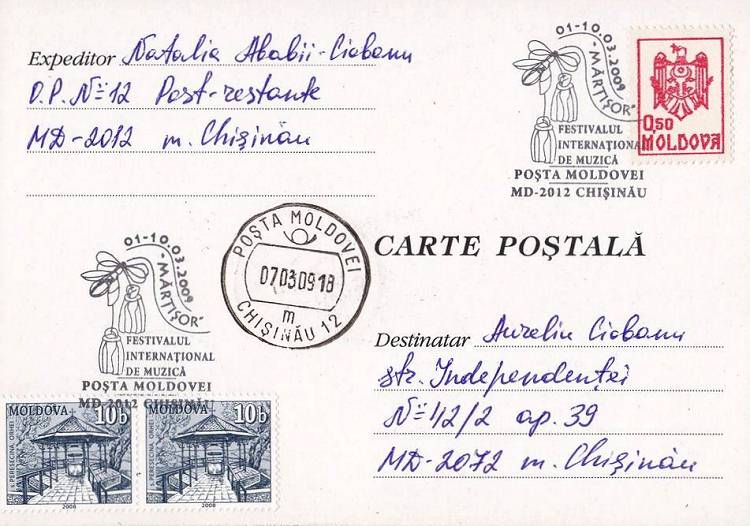 Expeditor Natalia Ababii-Ciobanu
O.P. Nº12 Post-restante
MD-2012 m. Chişinău
01-10.03.2009
"MĂRŢIŞOR"
FESTIVALUL
INTERNAŢIONAL
DE MUZICĂ
POŞTA MOLDOVEI
MD-2012 CHIŞINĂU
0,50
MOLDOVA
POŞTA MOLDOVEI
07.03.09 18
m
CHIŞINĂU 12
CARTE POŞTALĂ
Destinatar Aureliu Ciobanu
str. Independenţei
Nº 42/2 ap. 39
MD-2072 m. Chişinău
01-10.03.2009
"MĂRŢIŞOR"
FESTIVALUL
INTERNAŢIONAL
DE MUZICĂ
POŞTA MOLDOVEI
MD-2012 CHIŞINĂU
MOLDOVA 10b
2008
MOLDOVA 10b
2008